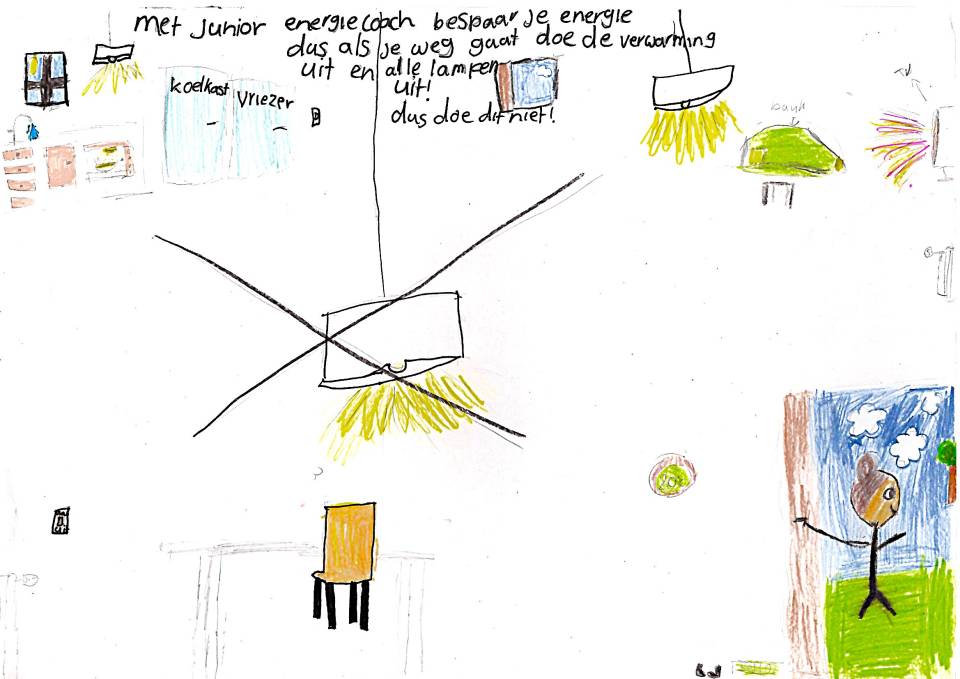 met Junior energiecoach bespaar je energie
dus als je weg gaat doe de verwarming
uit en alle lampen
uit!
dus doe dit niet!
koelkast
vriezer
bank
TV